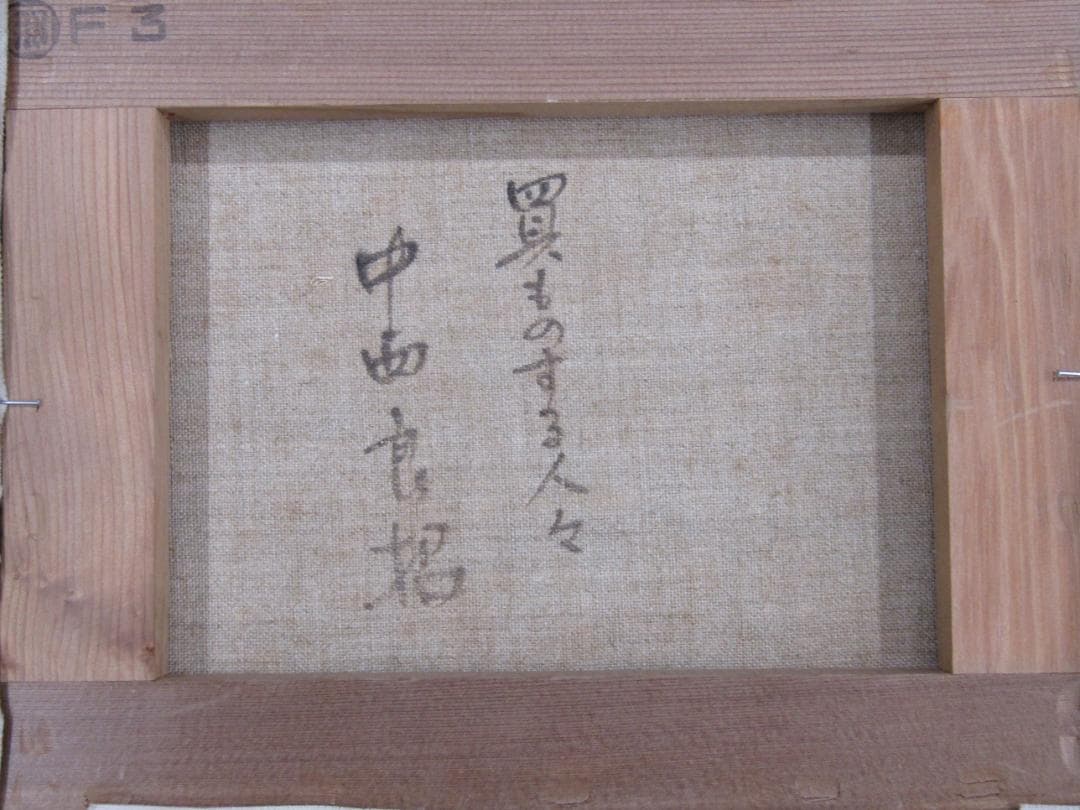 F3
買ものする人々
中西良